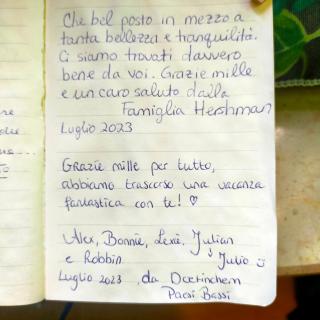 Che bel posto in mezzo a
tanta bellezza e tranquilità.
Ci siamo trovati davvero
bene da voi. Grazie mille
e un caro saluto dalla
Famiglia Hershman
Luglio 2023
Grazie mille per tutto,
abbiamo trascorso una vacanza
fantastica con te! ♡
Alex, Bonnie, Lexie, Julian
e Robbin
↳ Julio ☺
Luglio 2023, da Doetinchem
Paesi Bassi